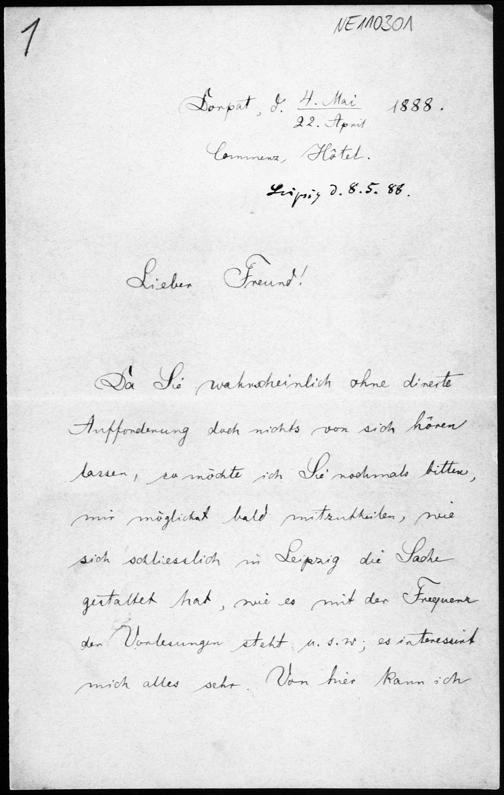 1
NE110301
Dorpat, d. 4. Mai 1888.
22. April
Commerz, Hôtel.
Leipzig d. 8.5.88.
Lieber Freund!
Da Sie wahrscheinlich ohne directe
Aufforderung doch nichts von sich hören
lassen, so möchte ich Sie nochmals bitten,
mir möglichst bald mitzutheilen, wie
sich schliesslich in Leipzig die Sache
gestaltet hat, wie es mit der Frequenz
der Vorlesungen steht u.s.w; es interessirt
mich alles sehr. Von hier kann ich